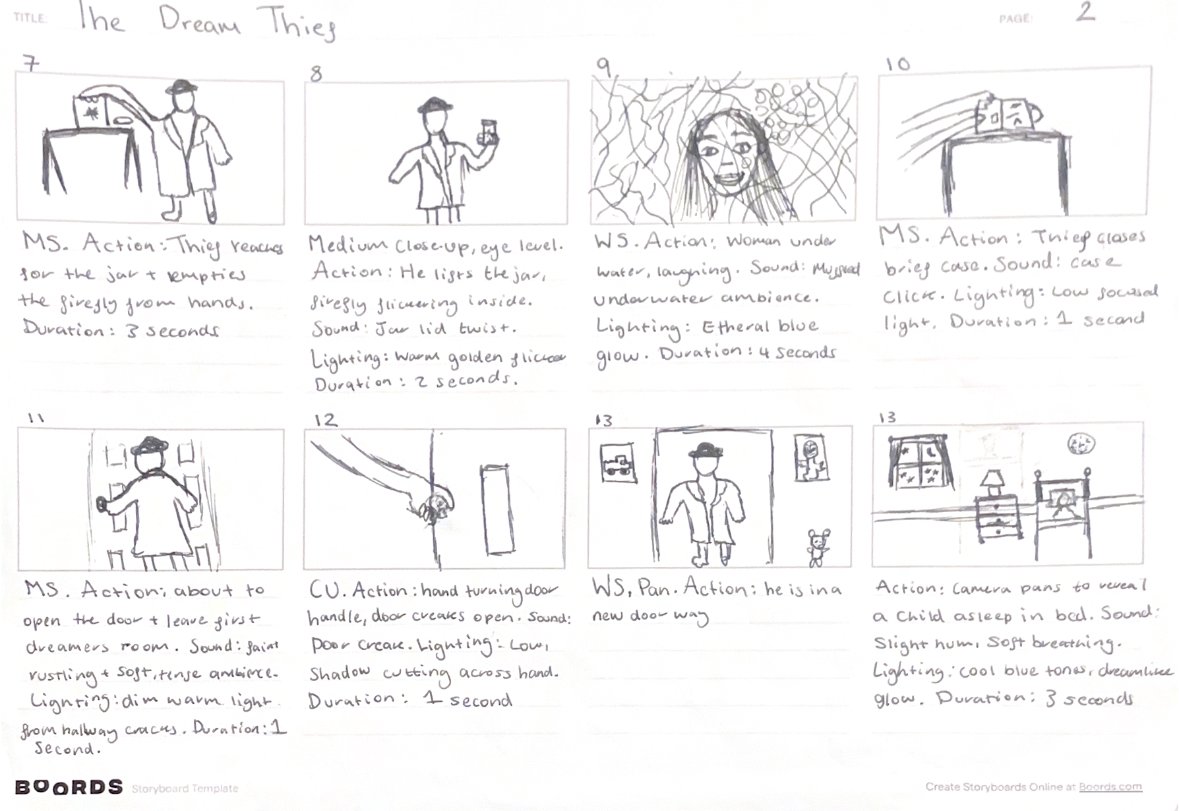 TITLE: The Dream Thief
PAGE: 2
7
MS. Action: Thief reaches
for the jar + empties
the firefly from hands.
Duration: 3 seconds
8
Medium Close-up, eye level.
Action: He lifts the jar,
firefly flickering inside.
Sound: Jar lid twist.
Lighting: Warm golden flicker
Duration: 2 seconds.
9
WS. Action: Woman under
water, laughing. Sound: Muffled
underwater ambience.
Lighting: Etheral blue
glow. Duration: 4 seconds
10
MS. Action: Thief closes
brief case. Sound: case
Click. Lighting: Low focused
light. Duration: 1 second
11
MS. Action: about to
open the door + leave first
dreamers room. Sound: faint
rustling + soft, tense ambience.
Lighting: dim warm light
from hallway cracks. Duration: 1
Second.
12
CU. Action: hand turning door
handle, door creaks open. Sound:
Door creak. Lighting: Low,
Shadow cutting across hand.
Duration: 1 second
13
WS, Pan. Action: he is in a
new door way
13
Action: Camera pans to reveal
a Child asleep in bed. Sound:
Slight hum, Soft breathing.
Lighting: cool blue tones, dreamlike
glow. Duration: 3 seconds
BOORDS Storyboard Template
Create Storyboards Online at Boords.com